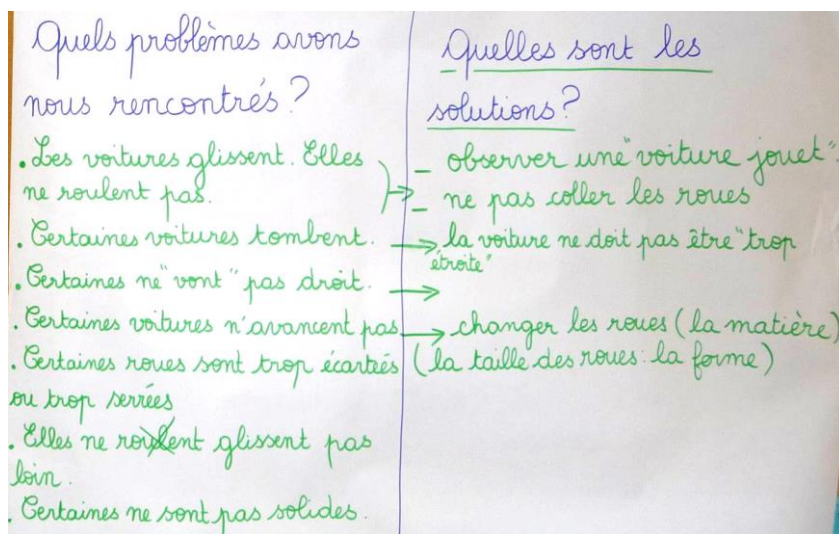 Quels problèmes avons
nous rencontrés?
. Les voitures glissent. Elles
ne roulent pas.
. Certaines voitures tombent.
. Certaines ne "vont" pas droit.
. Certaines voitures n'avancent pas
. Certaines roues sont trop écartées
ou trop serrées
. Elles ne roulent glissent pas
loin.
. Certaines ne sont pas solides.
Quelles sont les
solutions?
→ - observer une "voiture jouet".
- ne pas coller les roues
→ la voiture ne doit pas être "trop
étroite"
→
→ changer les roues (la matière)
(la taille des roues: la forme)